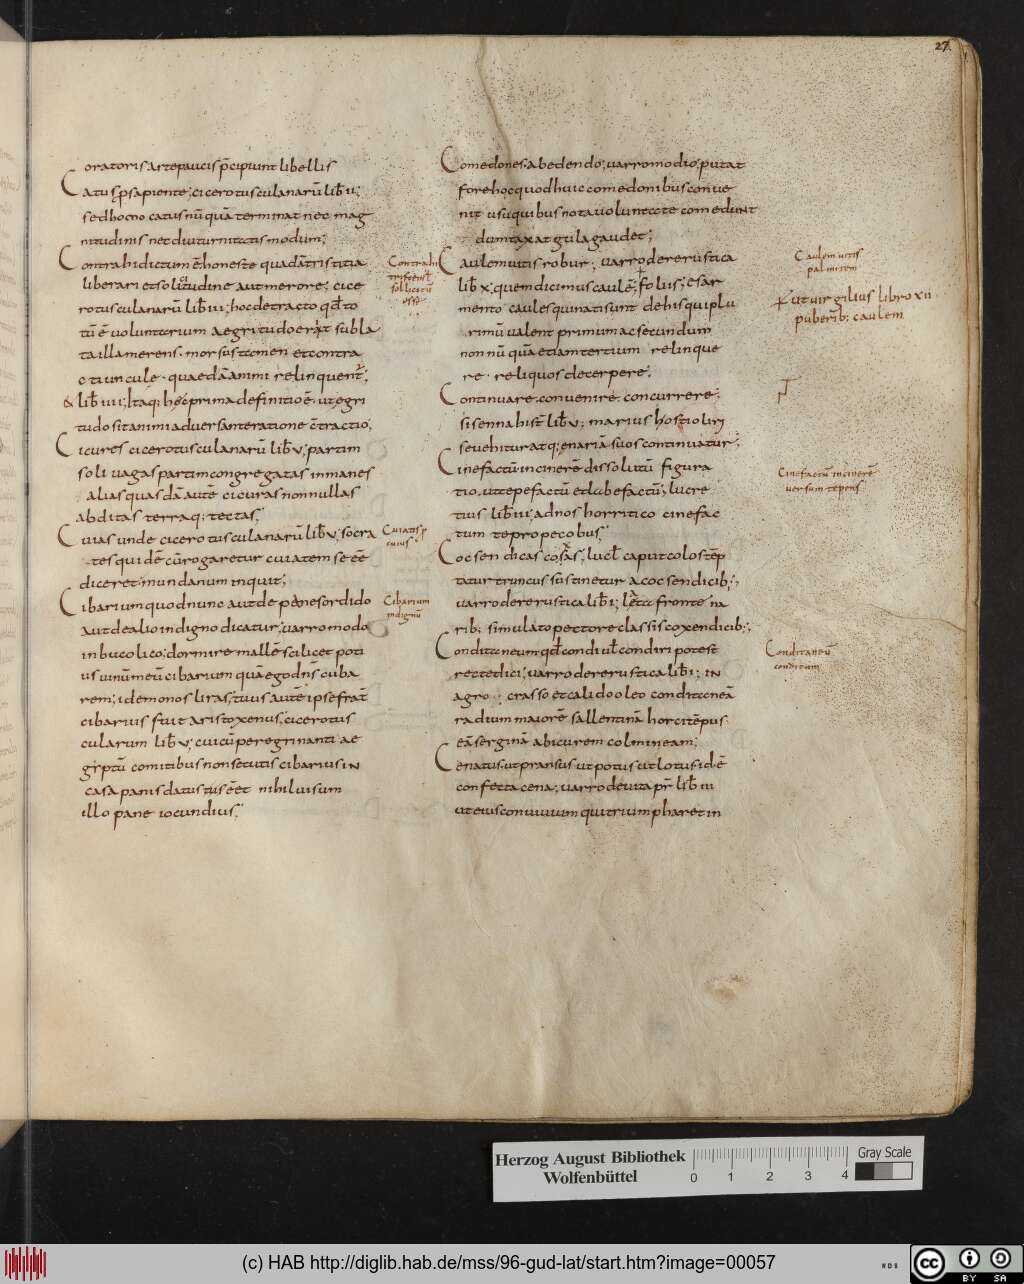 27
oratoris arte paucis p̄cipiunt libellis
Catus p̱ sapiente; cicero tusculanarū lib̄ ii;
sed hoc no catus nū quā terminat nec mag
nitudinis nec diuturnitatis modum;
Contrahi dictum ē honeste quadā tristitia
liberari et solitudine aut merore; cice
ro tusculanarū lib̄ iii; hoc detracto qd̄ to
tū ē uoluntarium aegritudo erit subla
ta illa merens. morsus tamen et contra
ctiuncule. quaedā animi relinquent;
& lib̄ iiii; Itaq; hęc prima definitio ē. ut egri
tudo sit animi aduersante ratione c̄tractio;
Cicures cicero tusculanarū lib̄ v; partim
soliuagas partim congregatas inmanes
alias quasdā autē cicuras nonnullas
abditas terraq; tectas;
Cuias unde cicero tusculanarū lib̄ v; socra
tes quidē cū rogaretur cuiatem se eē
diceret; mundanum inquit;
Cibarium quod nunc aut de pane sordido
aut de alio indigno dicatur; uarro modo
in bucolico; dormire mallē scilicet poti
us uinū meū cibarium quā ego dn̄s cuba
rem; idem onos liras; tuus autē ipse frat̄
cibarius fuit aristoxenus; cicero tus
cularum lib̄ v; cui cū peregrinanti ae
gyptū comitibus non secutis cibarius in
casa panis datus tus ē et nihil uisum
illo pane iocundius;
Contrahi
tristem ł
sollicitū
esse
Cuiatis p
cuius
Cibarium
indignū
Comedones. ab edendo; uarro modio; putat
fore hoc quod huic comedonibus conue
nit usu quibus nota uoluntate comedunt
dumtaxat gula gaudet;
Caulem uitis robur; uarro de re rustica
lib̄ x; quem dicimus caulē; folius; e sar
mento caules qui nati sunt de his qui plu
rimū ualent primum ac secundum
non nū quā etiam tertium relinque
re. reliquos decerpere;
Continuare. conuenire. concurrere;
sisenna hist̄ lib̄ v; marius hostio liri
seuehitur atq; enariā suos continuatur;
Cinefactū in cinerē dissolutū figura
tio. ut tepefactū et labefactū; lucre
tius lib̄ iii; ad nos horritico cinefac
tum te prope cobus;
Cocsendicas cosas; lucł caput colo stēp
tatur truncus sustinetur a cocsendicib;
uarro de re rustica lib̄ i; lata fronte na
rib; simulato pectore classis coxendicib;
Conditaneum qd̄ condi uł condiri potest
recte dici; uarro de re rustica lib̄ i; in
agro; crasso et calido oleo conditaneā
radium maiorē sallentinā horcitēpus
eā serginā abicurem colmineam;
Cenatus. ut pransus ut potus ut lotus idē
confecta cena; uarro de uita pr̄ lib̄ iii
ut eius conuiuium qui triumpharet in
Caulem uitis
palmitem
ut uirgilius libro xii
puberib; caulem
Cinefactū in cinerē
uersum tepens
Conditaneū
conditum
Herzog August Bibliothek
Wolfenbüttel
0 1 2 3 4
Gray Scale
(c) HAB http://diglib.hab.de/mss/96-gud-lat/start.htm?image=00057
WDB
cc BY SA